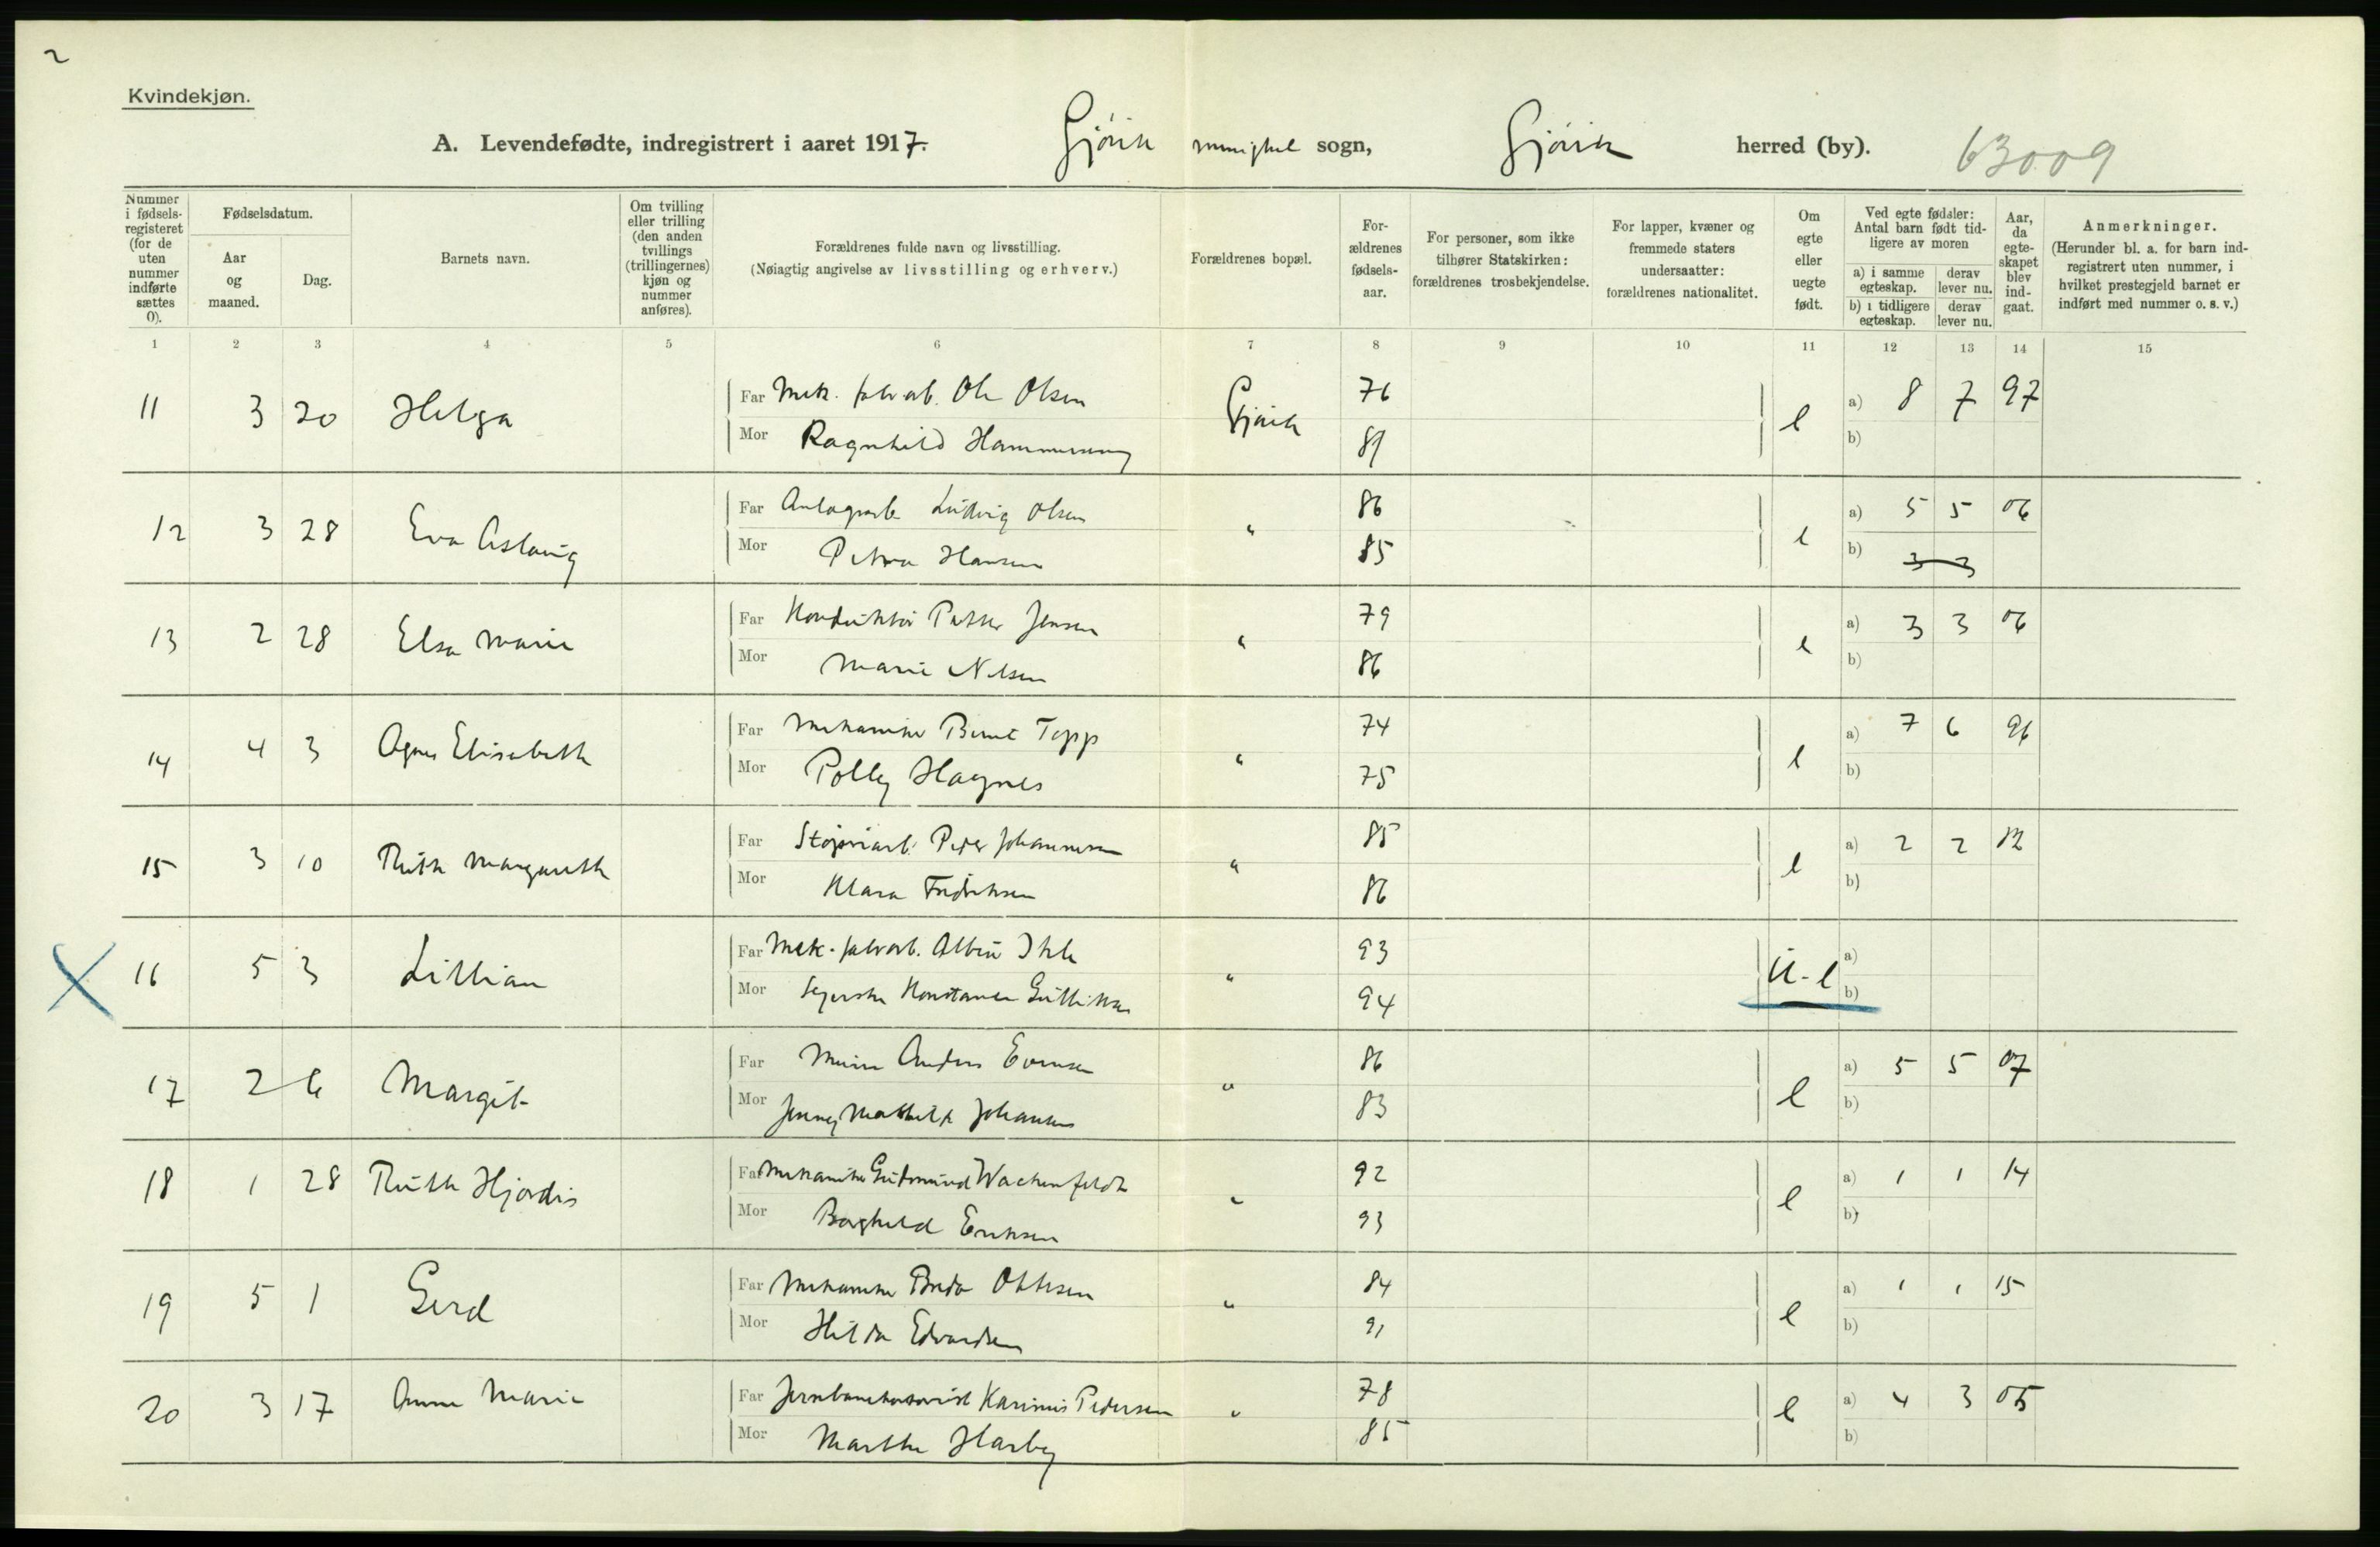 2
Kvindekjøn.
A. Levendefødte, indregistrert i aaret 1917. Gjøvik sogn, Gjøvik herred (by). 63009
Nummer i fødsels-registeret (for de uten nummer indførte sættes 0).
Fødselsdatum.
Aar og maaned.
Dag.
Barnets navn.
Om tvilling eller trilling (den anden tvillings (trillingernes) kjøn og nummer anføres).
Forældrenes fulde navn og livsstilling.
(Nøiagtig angivelse av livsstilling og erhverv.)
Forældrenes bopæl.
For-ældrenes fødsels-aar.
For personer, som ikke tilhører Statskirken: forældrenes trosbekjendelse.
For lapper, kvæner og fremmede staters undersaatter: forældrenes nationalitet.
Om egte eller uegte født.
Ved egte fødsler: Antal barn født tid-ligere av moren
a) i samme egteskap. derav lever nu.
b) i tidligere egteskap. derav lever nu.
Aar, da egte-skapet blev ind-gaat.
Anmerkninger.
(Herunder bl. a. for barn ind-registrert uten nummer, i hvilket prestegjeld barnet er indført med nummer o. s. v.)
1 2 3 4 5 6 7 8 9 10 11 12 13 14 15
11 3 20 Helga Far Mek. fabrarb. Ole Olsen Gjøvik 76 e a) 8 7 97
Mor Ragnhild 81 b)
12 3 28 Eva Aslaug Far Ludvig Olsen " 86 e a) 5 5 06
Mor Petra Hansen 85 b) 3 3
13 2 28 Elsa Marie Far Konduktør Petter Jensen " 79 e a) 3 3 06
Mor Marie Nilsen 86 b)
14 4 3 Agnes Elisabeth Far Mekaniker Bernt Topp " 74 e a) 7 6 96
Mor Polly Hagnes 75 b)
15 3 10 Ruth Margareth Far Støperiarb. Peder Johannesen " 85 e a) 2 2 12
Mor Klara Fredriksen 86 b)
16 5 3 Lillian Far Mek. fabrarb. Albin Ihle " 93 u-e a)
Mor Konstance Gulliksen 94 b)
17 2 6 Margit Far Murer Anders Evensen " 86 e a) 5 5 07
Mor Jenny Mathilde Johansen 83 b)
18 1 28 Ruth Hjørdis Far Mekaniker Gudmund Wachenfeldt " 92 e a) 1 1 14
Mor Borghild Eriksen 93 b)
19 5 1 Gerd Far Mekaniker Ottesen " 84 e a) 1 1 15
Mor Hilda Edvardsen 91 b)
20 3 17 Anna Marie Far Karinius Pedersen " 78 e a) 4 3 05
Mor Marthe Harby 85 b)